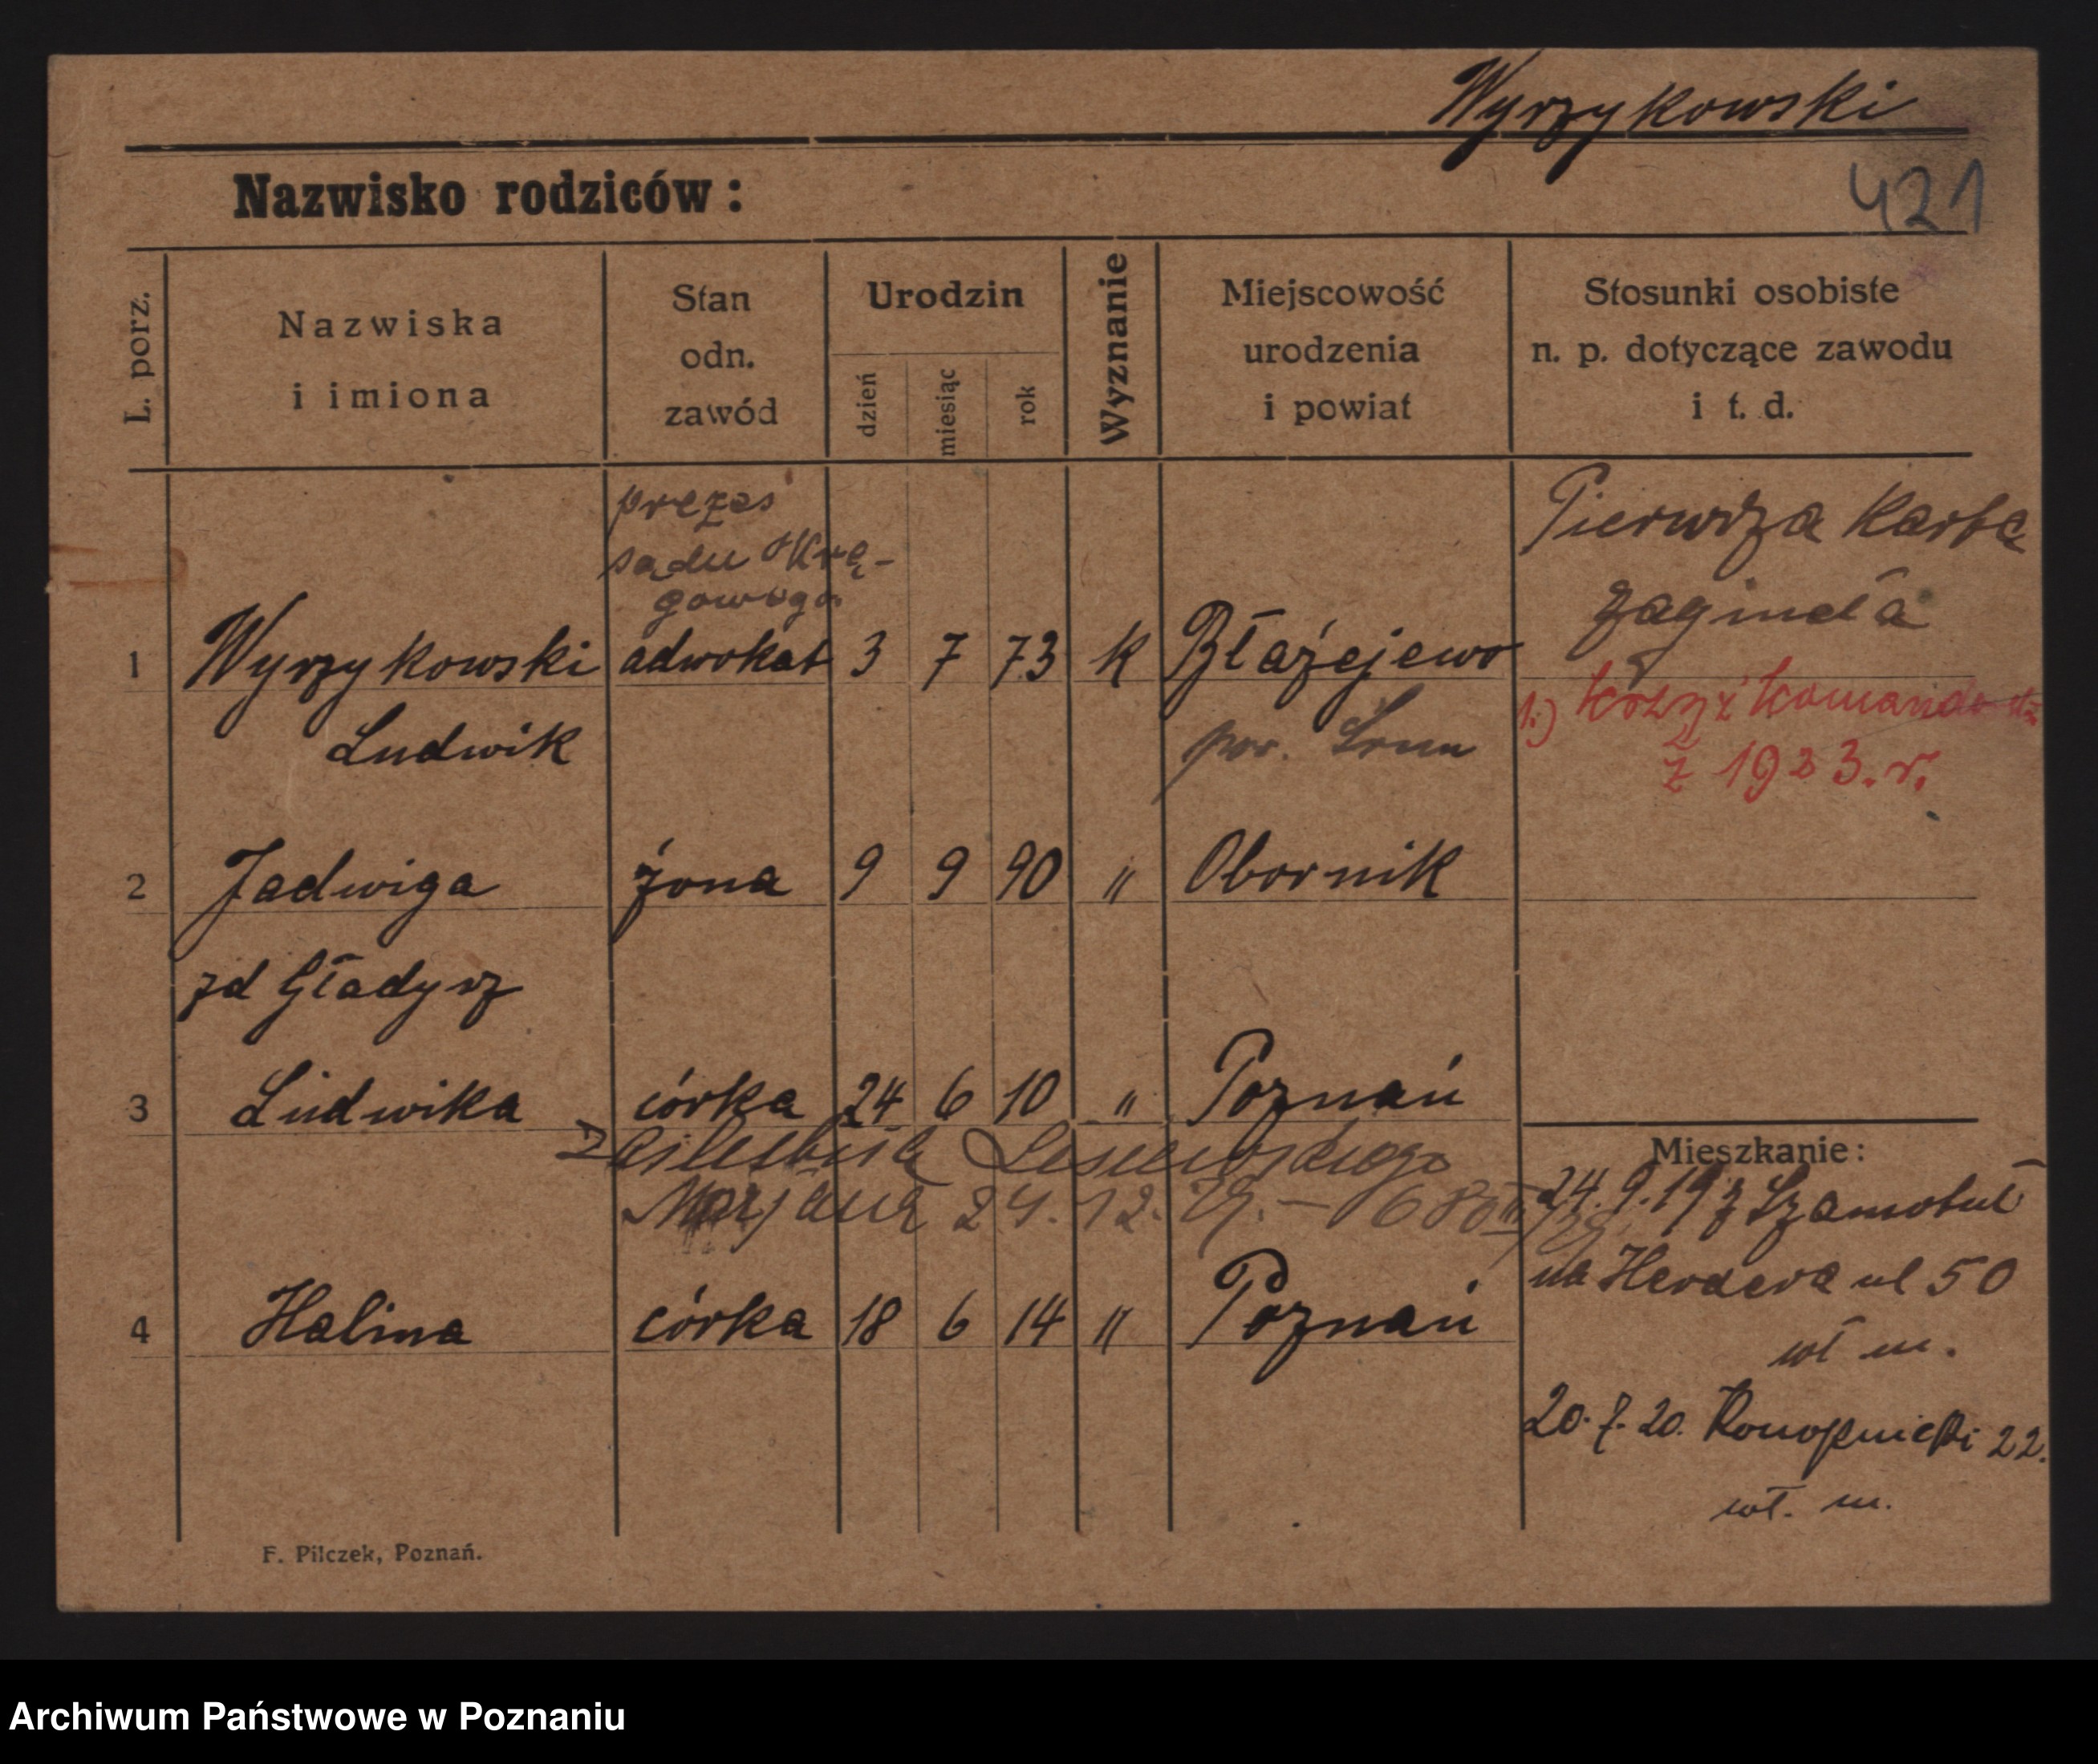 Wyrzykowski
421
Nazwisko rodziców:
L. porz.
Nazwiska
i imiona
Stan
odn.
zawód
Urodzin
dzień
miesiąc
rok
Wyznanie
Miejscowość
urodzenia
i powiat
Stosunki osobiste
n. p. dotyczące zawodu
i t. d.
prezes
sądu Okrę-
gowego
Pierwsza karta
zaginęła
1 Wyrzykowski adwokat 3 7 73 k Błażejewo
Ludwik
pow. Śrem
1.) krzyż komandorski
z 1923. r.
2 Jadwiga żona 9 9 90 " Obornik
zd Gładysz
3 Ludwika córka 24 6 10 " Poznań
zaślubiła
Marjana 24.12.29. –
4 Halina córka 18 6 14 " Poznań
Mieszkanie:
24.9.19 z Szamotuł
na Herdera ul 50
wł m.
20.7.20. Konopnicki 22.
wł. m.
F. Pilczek, Poznań.
Archiwum Państwowe w Poznaniu